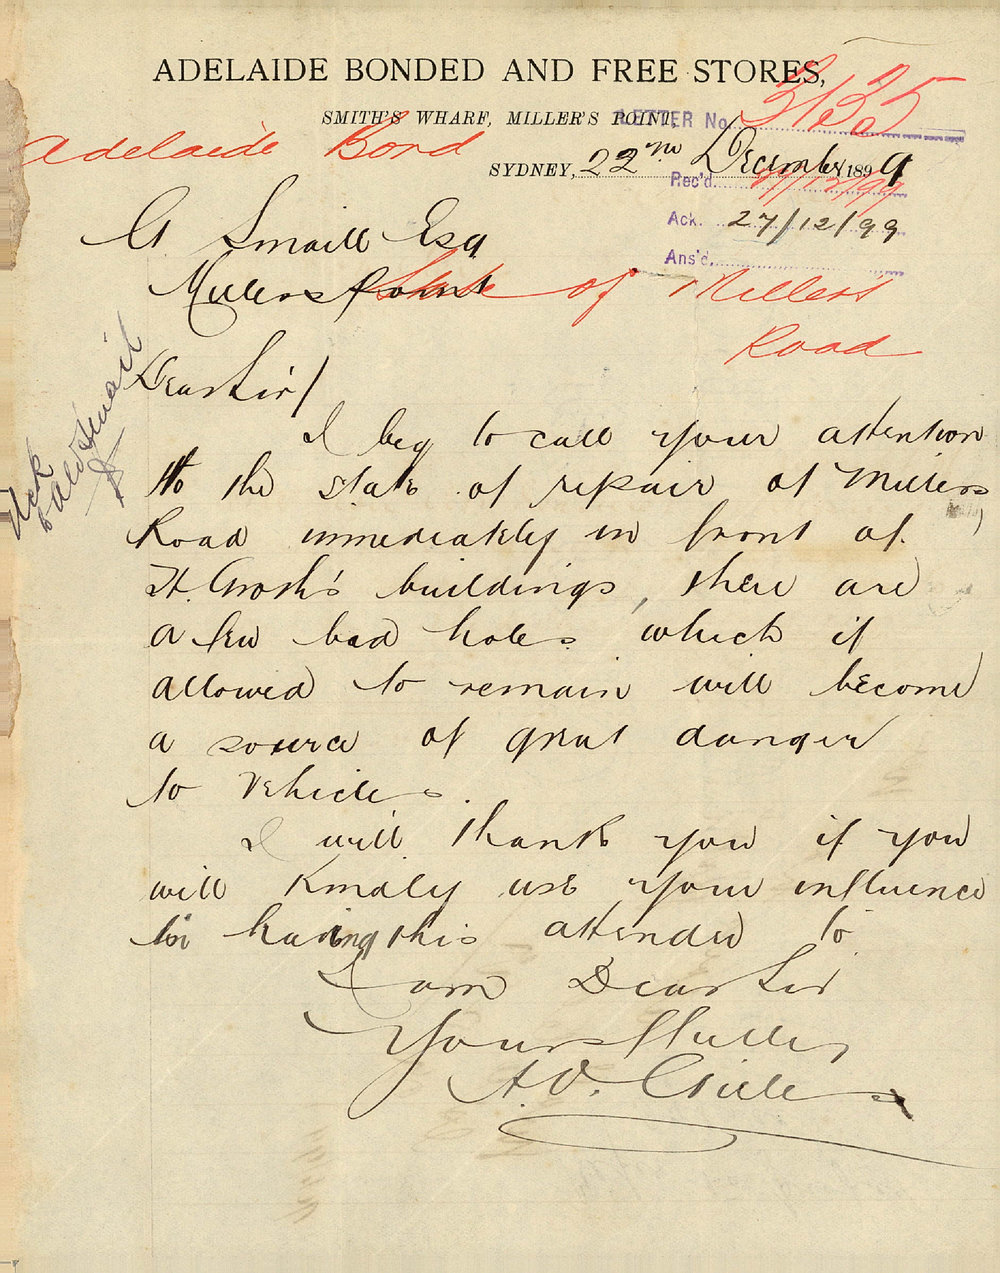 ADELAIDE BONDED AND FREE STORES,
SMITH'S WHARF, MILLER'S POINT,
LETTER No. 3135
Adelaide Bond
SYDNEY, 22nd December 1899
Rec'd. 27/12/99
Ack. 27/12/99
Ans'd.
G. Smaill Esq
Millers point
State of Millers
Road
Dear Sir/
Ack
to Ald Smail
I beg to call your attention
to the state of repair of Millers
Road immediately in front of
buildings, there are
a few bad holes which if
allowed to remain will become
a source of great danger
to vehicles.
I will thank you if you
will kindly use your influence
in having this attended to
I am Dear Sir
Yours
A. O.